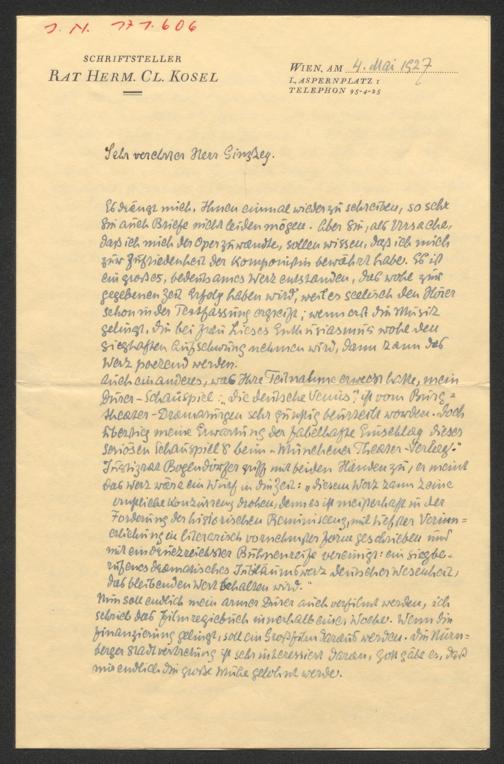 J. N. 171.606
SCHRIFTSTELLER
RAT HERM. CL. KOSEL
WIEN, AM 4. Mai 1927
I., ASPERNPLATZ 1
TELEPHON 75-4-25
Sehr verehrter Herr Ginzkey.
Es drängt mich, Ihnen einmal wieder zu schreiben, so sehr
Sie auch Briefe nicht leiden mögen. Aber Sie, als Ursache,
daß ich mich der Oper zuwandte, sollen wissen, daß ich mich
zur Zufriedenheit der Komponistin bewährt habe. Es ist
ein großes, bedeutsames Werk entstanden, das wohl zur
gegebenen Zeit Erfolg haben wird, weil es seelisch den Hörer
schon in der Textfassung ergreift; wenn erst die Musik
gelingt, die bei Frau Lieses Enthusiasmus wohl den
sieghaften Aufschwung nehmen wird, dann kann das
Werk packend werden.
Auch ein anderes, was Ihre Teilnahme erweckt hatte, mein
Dürer-Schauspiel: „Die deutsche Venus" ist vom Burg-
theater-Dramaturgen sehr günstig beurteilt worden. Doch
überstieg meine Erwartung der fabelhafte Einschlag dieses
seriösen Schauspiels beim "Münchener Theater-Verlag".
Justizrat Bogendörfer griff mit beiden Händen zu, er meint
das Werk wäre ein Wurf in die Zeit: „diesem Werk kann keine
ernstliche Konkurrenz drohen, denn es ist meisterhaft in der
Forderung der historischen Reminiszenz, mit tiefster Verinn-
erlichung in literarisch vornehmster Form geschrieben und
mit eindrucksreichster Bühnenreife vereinigt: ein siegbe-
rufenes dramatisches Jubiläumswerk deutscher Wesenheit,
das bleibenden Wert behalten wird."
Nun soll endlich mein armer Dürer auch verfilmt werden, ich
schrieb das Filmregiebuch innerhalb einer Woche. Wenn die
Finanzierung gelingt, soll ein Großfilm daraus werden. Die Nürn-
berger Stadtvertretung ist sehr interessiert daran, Gott gäbe es, daß
mir endlich die große Mühe gelohnt werde.